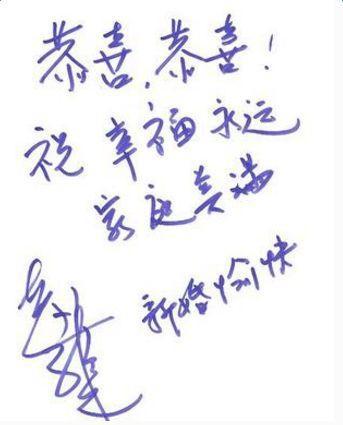 恭喜,恭喜!
祝 幸福永远
家庭美满
新婚愉快